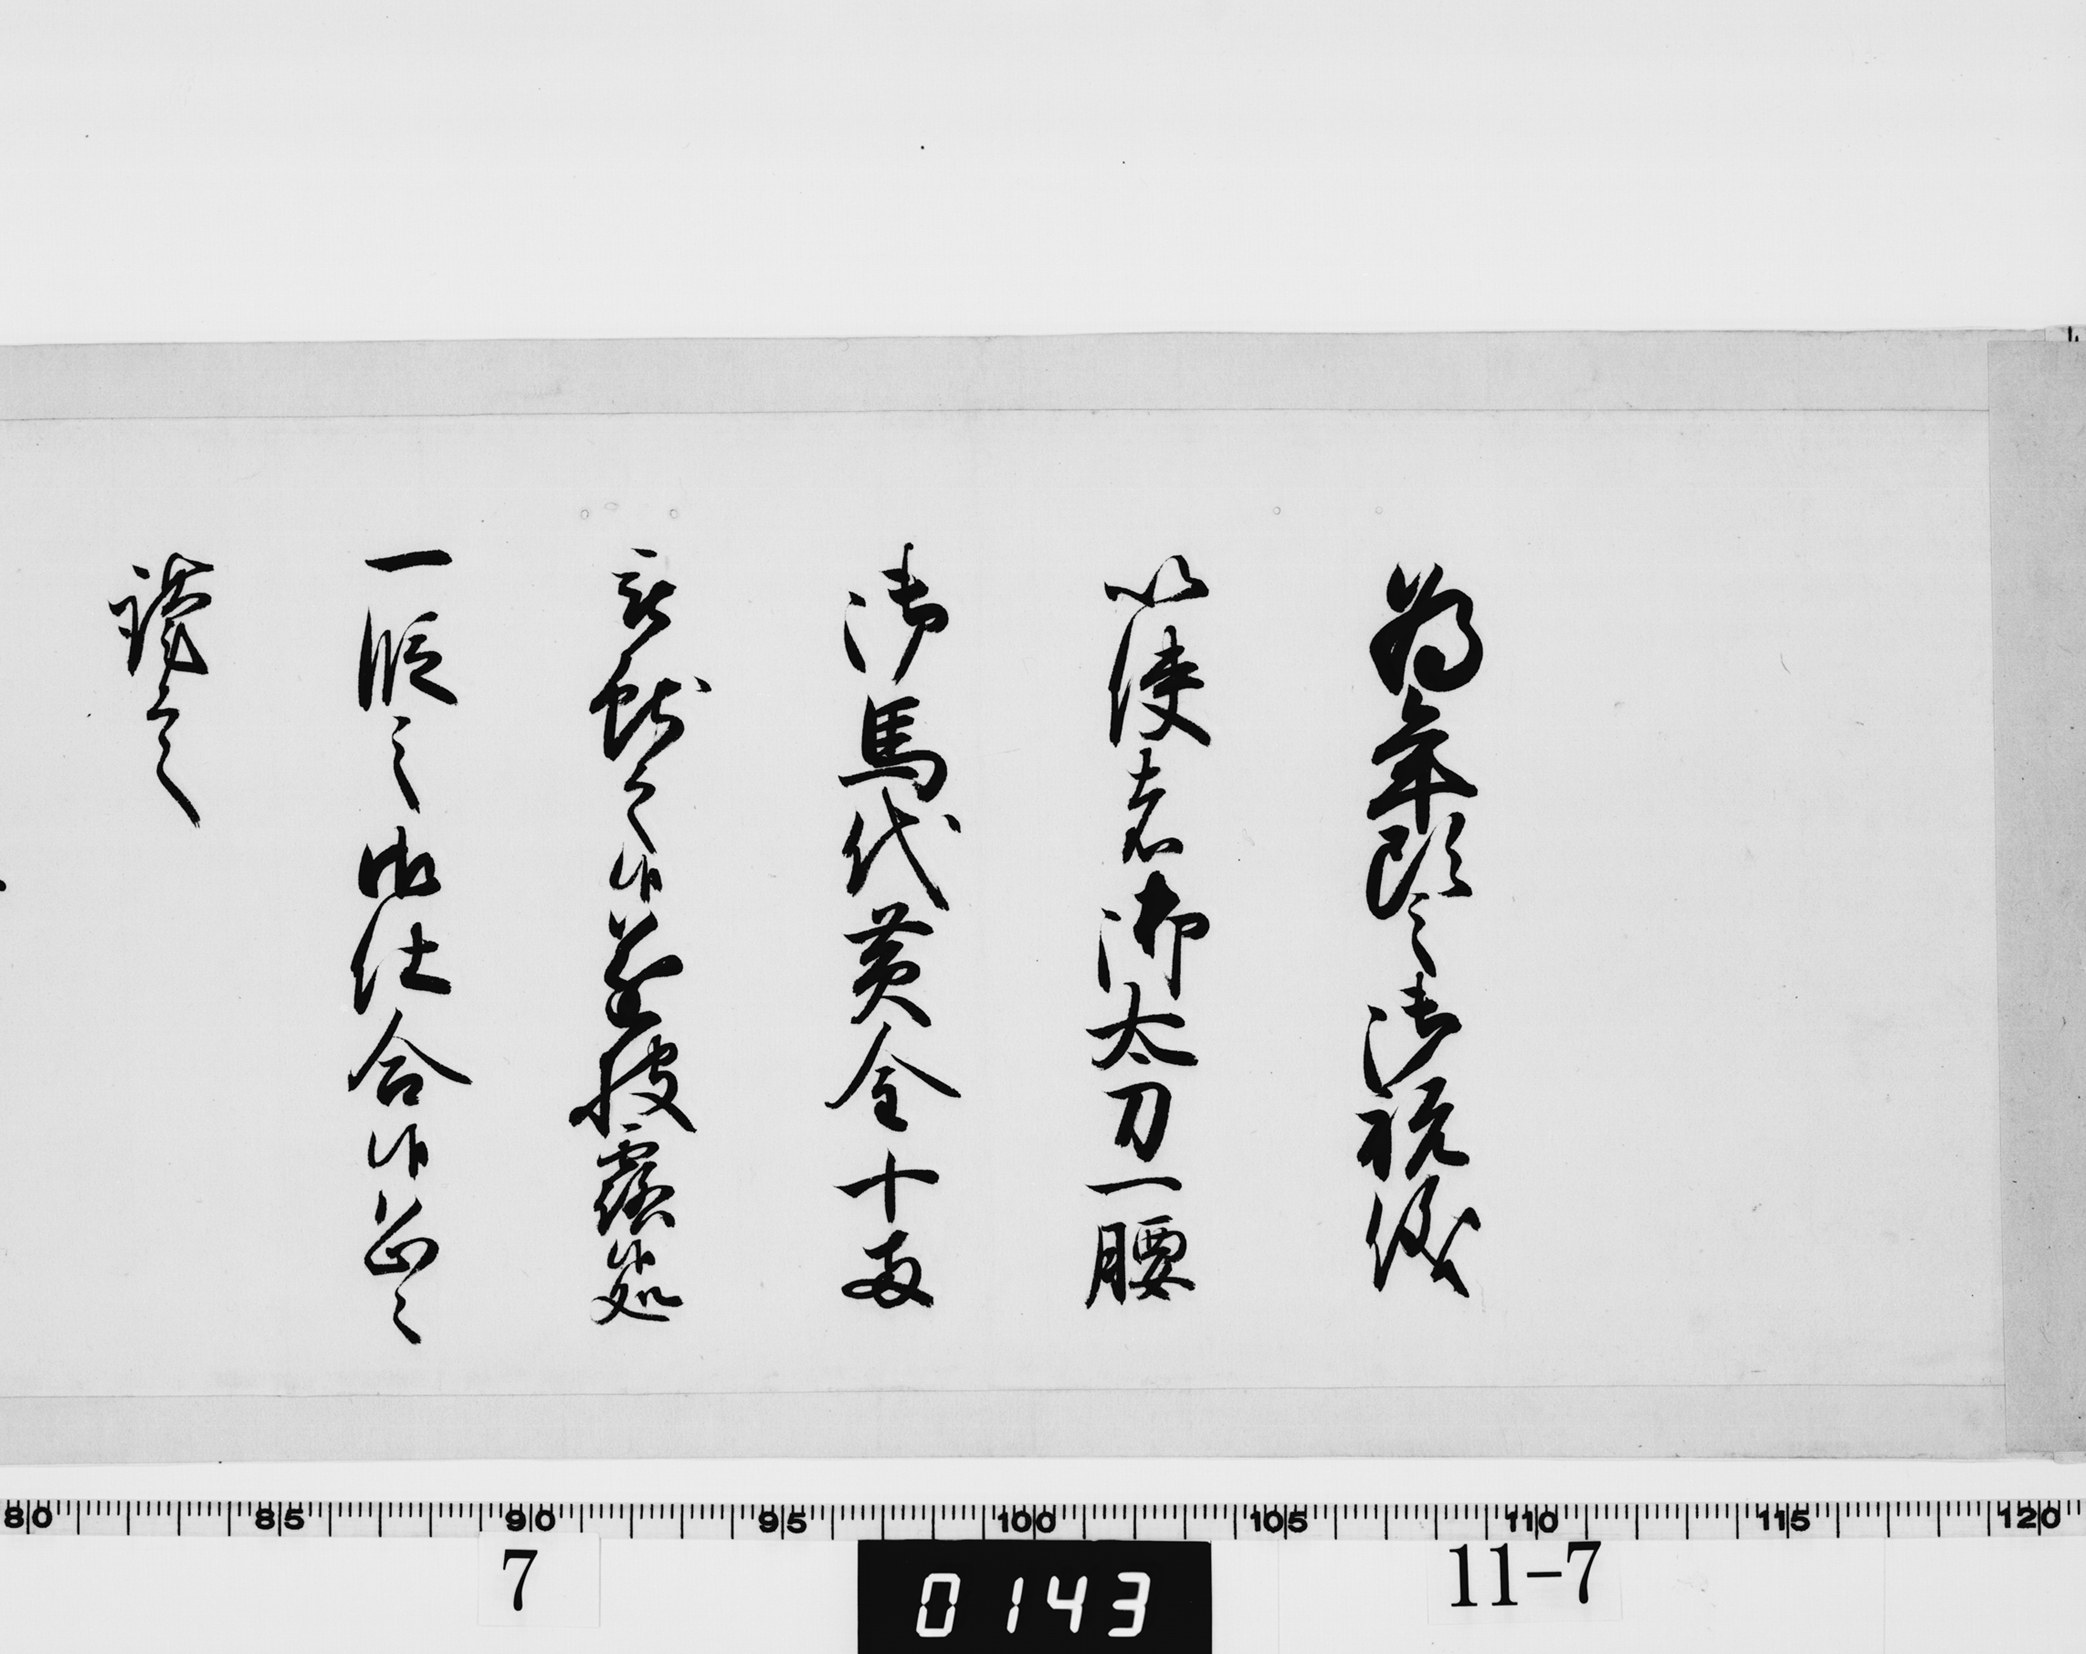 為年頭之御祝儀
以使者御太刀一腰
御馬代黄金十両
被献之候遂披露候処
一段之御仕合候恐々
謹言
80 85 90 95 100 105 110 115 120
7
0143
11-7